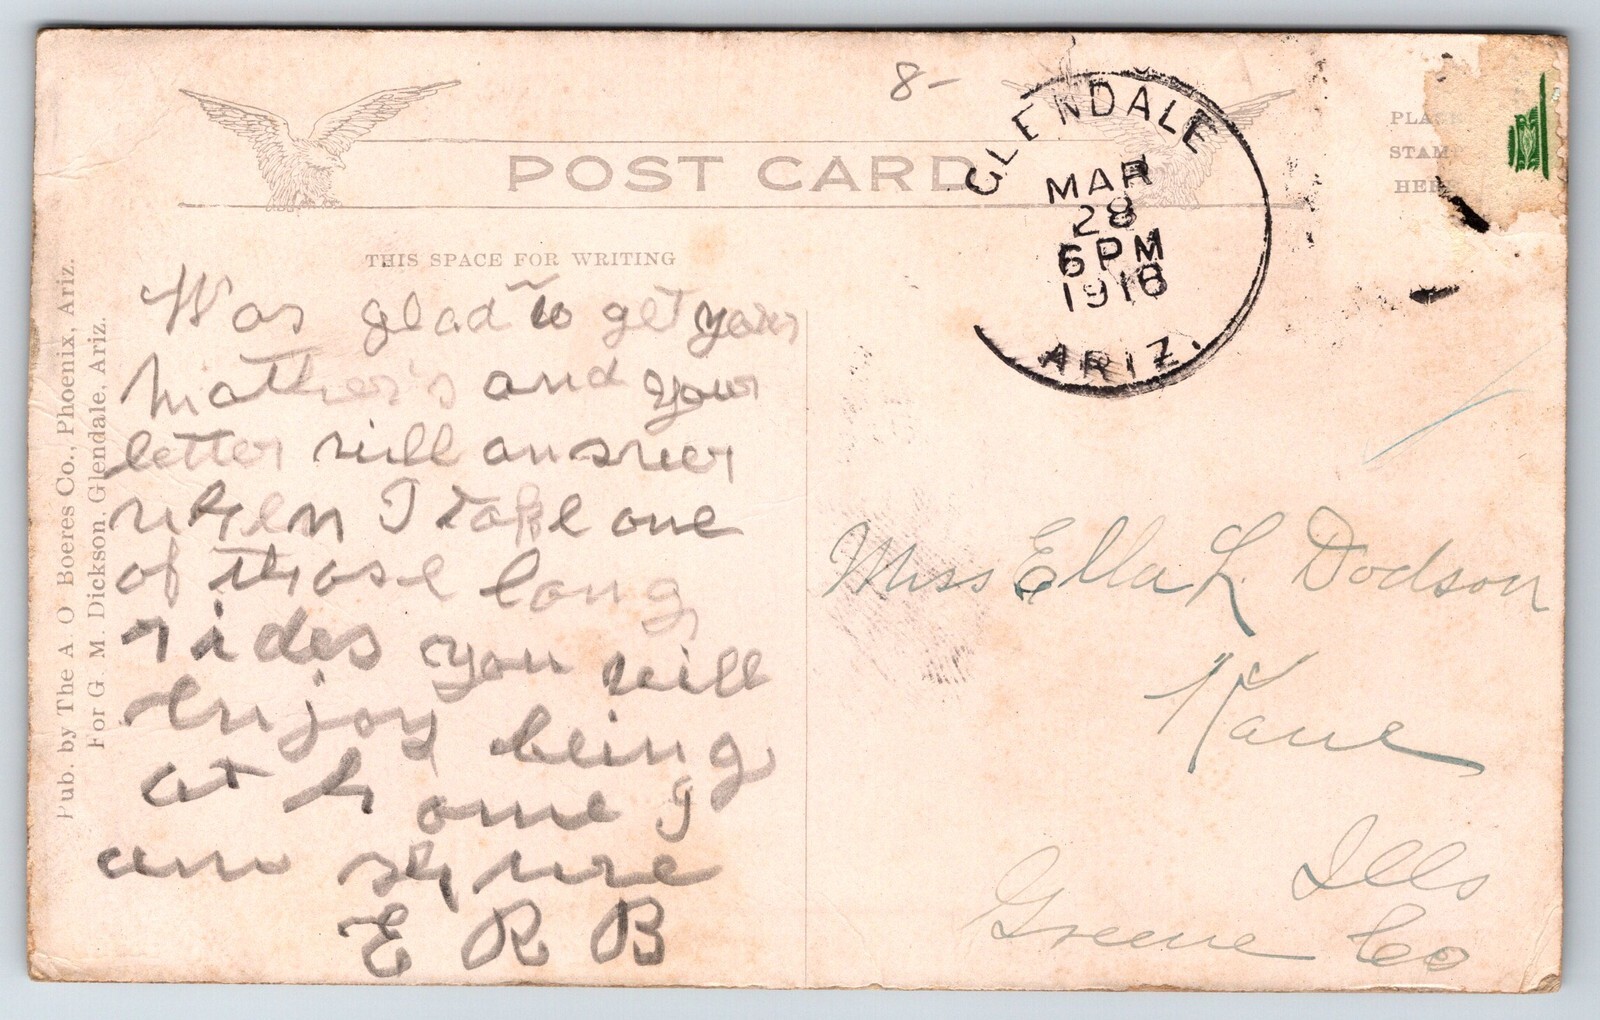 8-
POST CARD
GLENDALE
MAR
28
6 PM
1916
ARIZ.
PLACE
STAMP
HERE
THIS SPACE FOR WRITING
Pub. by The A O Boeres Co., Phoenix, Ariz.
For G. M. Dickson, Glendale, Ariz.
Was glad to get your
Mother's and your
letter will answer
when I take one
of those long
rides you will
Enjoy being
at home I
am shure
E R B
Miss Ella L. Dodson
Kane
Ills
Greene Co